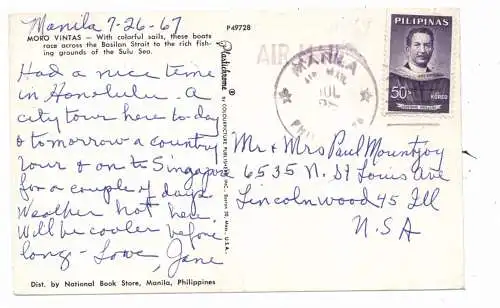 Manila 7-26-67
MORO VINTAS — With colorful sails, these boats
race across the Basilan Strait to the rich fish-
ing grounds of the Sulu Sea.
Had a nice time
in Honolulu. A
city tour here to-day
& tomorrow a country
tour & on to Singapore
for a couple of days
Weather hot here.
Will be cooler before
long - Love, Jane
Dist. by National Book Store, Manila, Philippines
P49728
Plastichrome ®
by COLOURPICTURE PUBLISHERS, INC.
U.S.A.
AIR MAIL
MANILA
AIR MAIL
JUL
PILIPINAS
50s
KOREO
Mr & Mrs Paul Mountjoy
6535 N. St Louis Ave
Lincolnwood 45 Ill
U.S.A